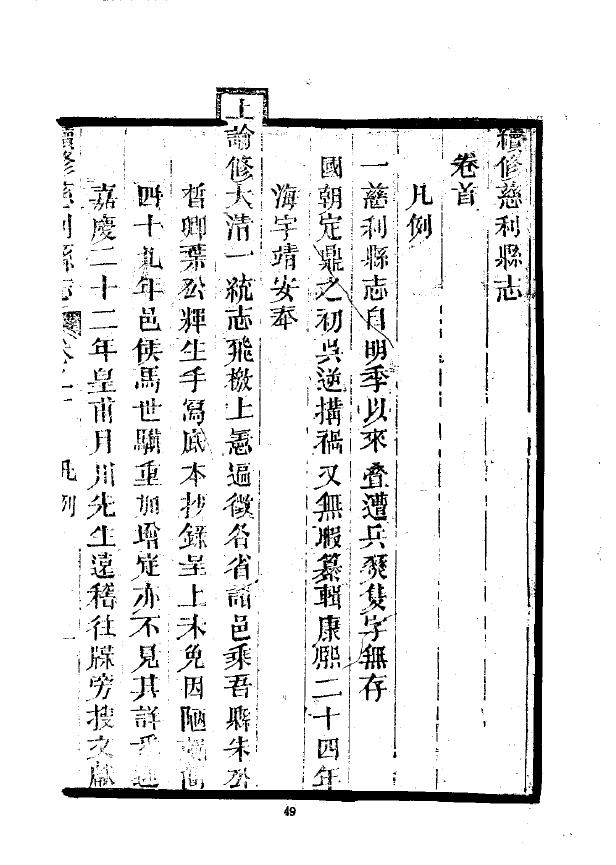 續修慈利縣志
卷首
凡例
一慈利縣志自明季以來叠遭兵燹隻字無存
國朝定鼎之初吳逆搆禍又無暇纂輯康熙二十四年
海宇靖安奉
上諭修大清一統志飛檄上憲遍徵各省諸邑乘吾縣朱公
哲卿葉公輝生手寫底本抄錄呈上未免因陋
四十九年邑侯馬世驥重加增定亦不見其詳
嘉慶二十二年皇甫月川先生遠稽往牒旁搜文獻
續修慈利縣志
卷之
凡例
一
49